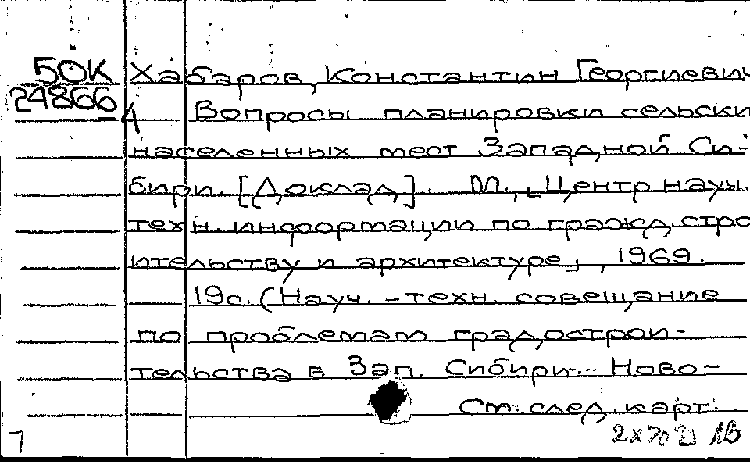 50К Хабаров, Константин Георгиевич
24866
4 Вопросы планировки сельски
населенных мест Западной Си-
бири. [Доклад]. М., [Центр науч.
техн. информации по гражд. стро
ительству и архитектуре], 1969.
19с. (Науч.-техн. совещание
по проблемам градострои-
тельства в Зап. Сибири. Ново-
См. след. карт.